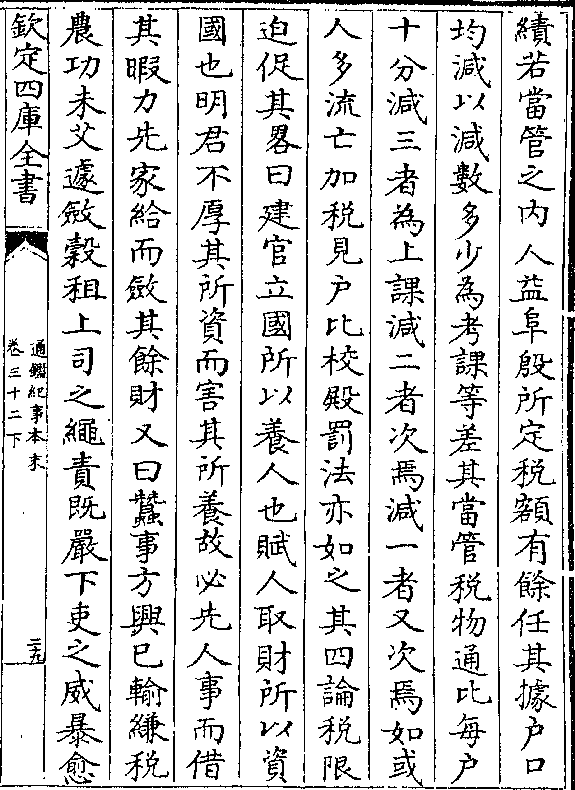 績若當管之内人益阜殷所定税額有餘任其據户口
均減以減數多少為考課等差其當管税物通比每户
十分減三者為上課減二者次焉減一者又次焉如或
人多流亡加税見户比校殿罰法亦如之其四論税限
迫促其畧曰建官立國所以養人也賦人取財所以資
國也明君不厚其所資而害其所養故必先人事而借
其暇力先家給而斂其餘財又曰蠶事方興已輸縑税
農功未艾遽斂穀租上司之繩責既嚴下吏之威暴愈
欽定四庫全書
通鑑紀事本末
卷三十二下
二九